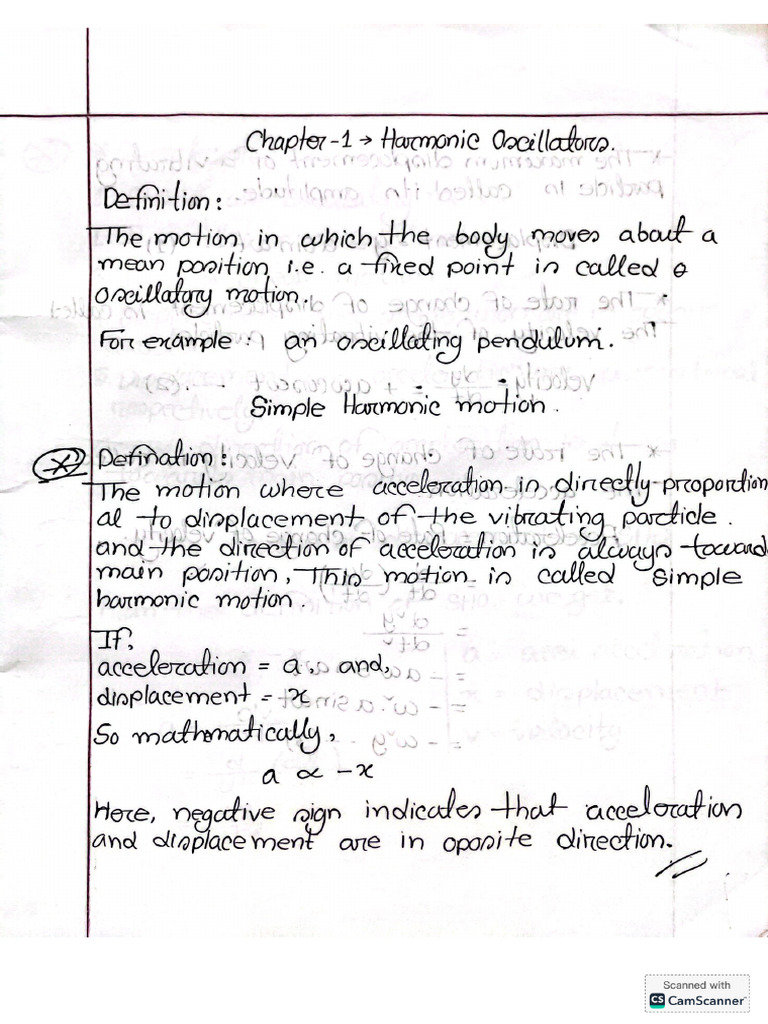 Chapter-1 → Harmonic Oscillators.
Definition:
The motion in which the body moves about a
mean position i.e. a fixed point is called
oscillatory motion.
For example : an oscillating pendulum.
Simple Harmonic motion.
Defination:
The motion where acceleration is directly proportion
al to displacement of the vibrating particle.
and the direction of acceleration is always toward
main position, This motion is called simple
harmonic motion.
If,
acceleration = a, and,
displacement = x
So mathmatically,
a ∝ -x
Here, negative sign indicates that acceleration
and displacement are in oposite direction.
Scanned with
CS CamScanner